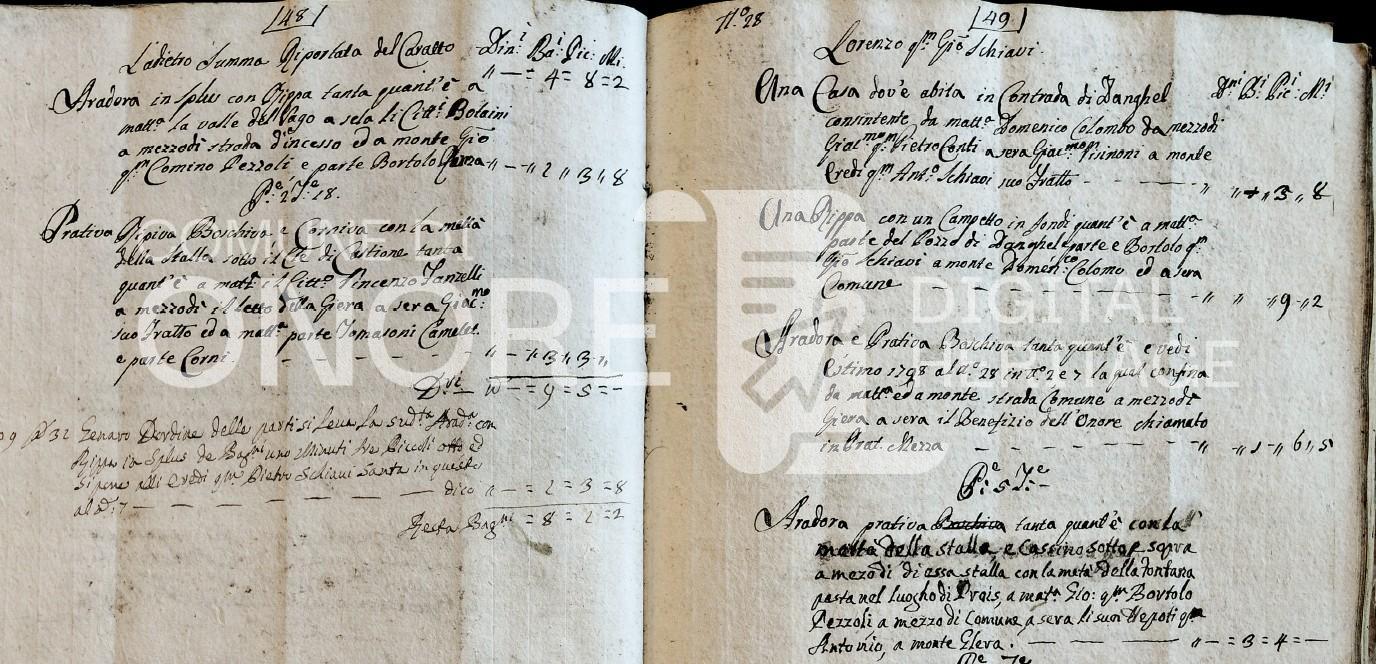 [48]
Ladietro Summa Riportata del Caratto Din:i Ba:i Pic: Mi:
" — = 4 = 8 = 2
Aradora in Splus con Rippa tanta quant'è a
matt.a la valle del Pago a sela li Citt.i Bolaini
a mezzodi strada d'incesso ed a monte Gio
q.m Comino Pezzoli e parte Bortolo " — " 2 " 3 " 8
P.e 2 T.e 18.
Prativa Ripiva Boschiva e Corniva con la mettà
della Stalla sotto il C.te di Castione tanta
quant'è a matt.i il Citt.o Vincenzo Janzelli
a mezzodi il Letto della Giera a sera Giac:mo
suo Fratto ed a matt.a parte Tomasoni Camelet.
e parte Corni — — — — " — " 3 " 3 "
= 9 = 5 = —
Genaro Dordine delle parti si Leva La sud.ta Arad.a con
Rippa in Splus de Bag.ni uno Minuti tre Piccoli otto ed
si pone alli eredi q.m Pietro Schiavi Santa in questo
al n.o: 7 — — — — — dico " — = 2 = 3 = 8
Resta Bag.ni = 8 = 1 = 2
N.o 28 [49]
Lorenzo q.m Gio Schiavi.
Una Casa dov'è abita in Contrada di Danghel D.ni B.i Pic:i M.i
consintente da matt.a Domenico Colombo da mezzodi
Giac.mo q.m Pietro Conti a sera Giac.mo Pinnoni a monte
Eredi q.m Ant.o Schiavi suo Fratto — — — " " + " 3 " 8
Una Rippa con un Campetto in fondi quant'è a matt.a
parte del Pozzo di Danghel e parte e Bortolo q.m
Gio Schiavi a monte Domen:co Colomo ed a sera
Comune — — — — " " " 9 " 2
Aradora e Prativa Boschiva tanta quant'è e vedi
Estimo 1798 al n.o 28 in n.o 2 e 7 la qual confina
da matt.a ed a monte strada Comune a mezzodi
Giera a sera il Benefizio dell'Onore chiamato
in Prat. Mezza — — — — " " 1 " 6 " 5
P.e: 5 T.e: —
Aradora prativa Boschiva tanta quant'è con la
mettà della stalla e Cassino sotto e sopra
a mezodi di essa stalla con la metà della fontana
pasta nel luogho di Prais, a mat.a Gio: q.m Bortolo
Pezzoli a mezzo di Comune a sera li suoi Nepoti q.m
Antonio, a monte Eleva. — — — " — = 3 = 4 = —
COMUNE DI
ONORE
DIGITAL
HERITAGE